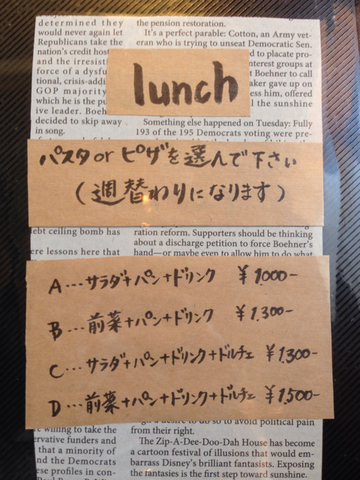 determined they
would never again let
Republicans take the
nation's credit
and the irresist
force of a dysfu
tional, crisis-addi
GOP majority
which he is the pu
ive leader. Boehner
decided to skip away
in song.
the pension restoration.
It's a perfect parable: Cotton, an Army vet-
eran who is trying to unseat Democratic Sen.
to placate pro-
interest groups at
Boehner to call
maker gave up on
ess him, offered
the sunshine
Something else happened on Tuesday: Fully
193 of the 195 Democrats voting were pre-
lunch
パスタorピザを選んで下さい
(週替わりになります)
debt ceiling bomb has
ere lessons here that
ration reform. Supporters should be thinking
about a discharge petition to force Boehner's
hand—or maybe even to allow him to do what
A…サラダ+パン+ドリンク ¥1,000-
B…前菜+パン+ドリンク ¥1,300-
C…サラダ+パン+ドリンク+ドルチェ ¥1,300-
D…前菜+パン+ドリンク+ドルチェ ¥1,500-
willing to take the
ervative funders and
that a minority of
and the Democrats
se profiles in con-
a desire to do so to avoid political pain
from their right.
The Zip-A-Dee-Doo-Dah House has become
a cartoon festival of illusions that would em-
barrass Disney's brilliant fantasists. Exposing
the fantasies is the first step toward sunshine.